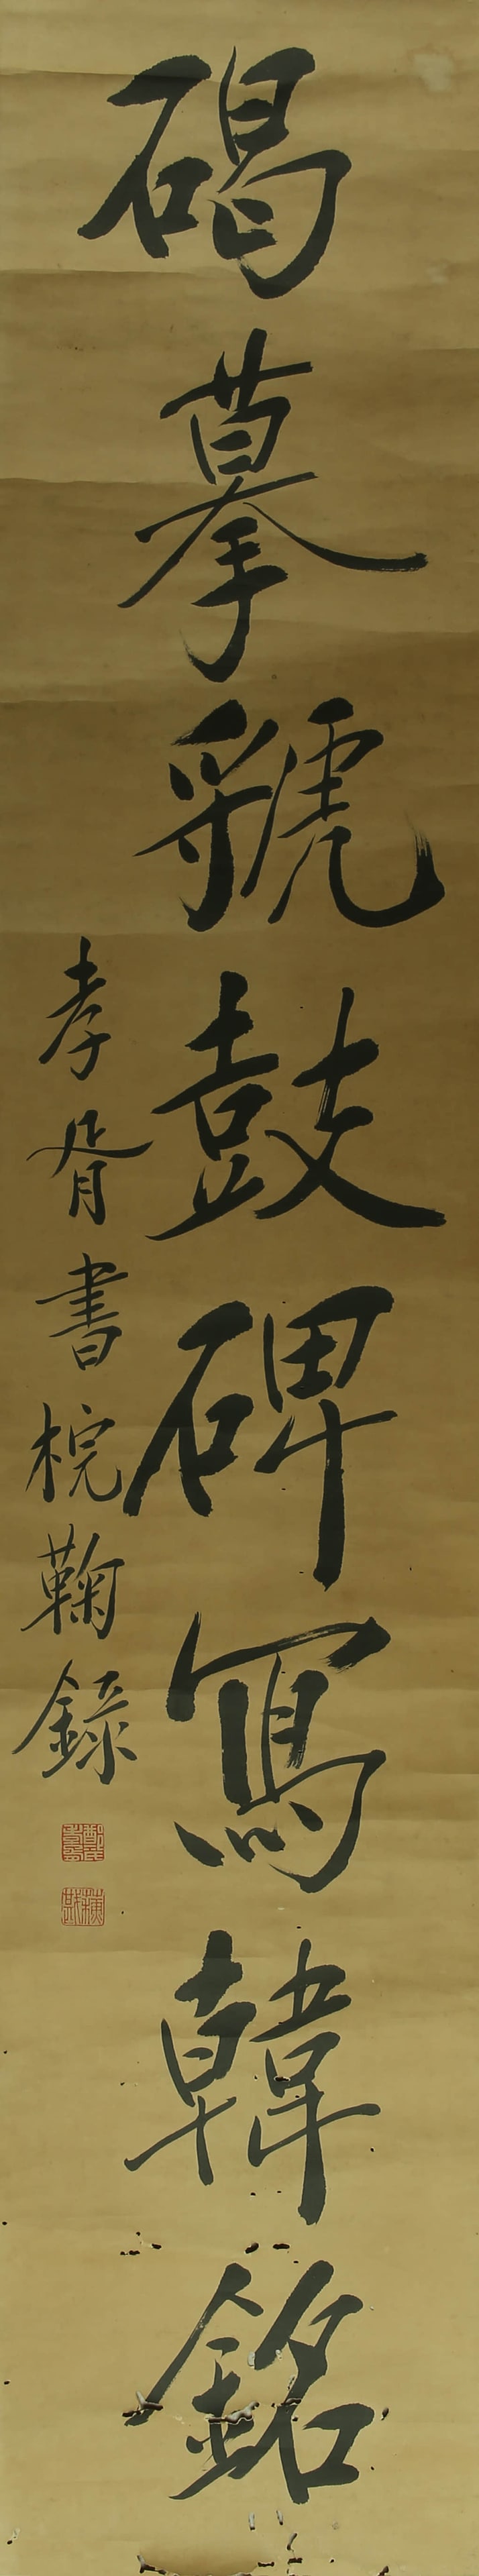 碣摹虢鼓碑寫韓銘
孝胥書梡鞠錄